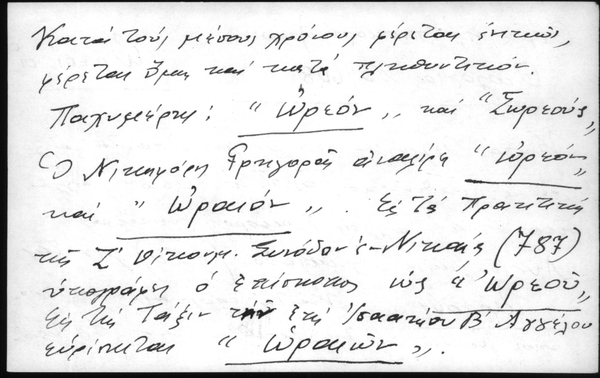 Κατά τούς μέσους χρόνους φέρεται ἑνικῶς,
φέρεται ὅμως καί κατά πληθυντικόν.
Παχυμέρης: "Ὠρεόν„ καί "Ὠρεούς„
Ὁ Νικηφόρος Γρηγορᾶς ἀναφέρει "ὠρεόν„
καί "Ὠραιόν„. Εἰς τά Πρακτικά
τῆς Ζ' Οἰκουμ. Συνόδου ἐν Νικαίᾳ (787)
ὑπογράφει ὁ ἐπίσκοπος ὡς "Ὠρεοῦ„
Εἰς τήν Τάξιν τήν ἐπί Ἰσαακίου Β' Ἀγγέλου
εὑρίσκεται "Ὠραιῶν„.